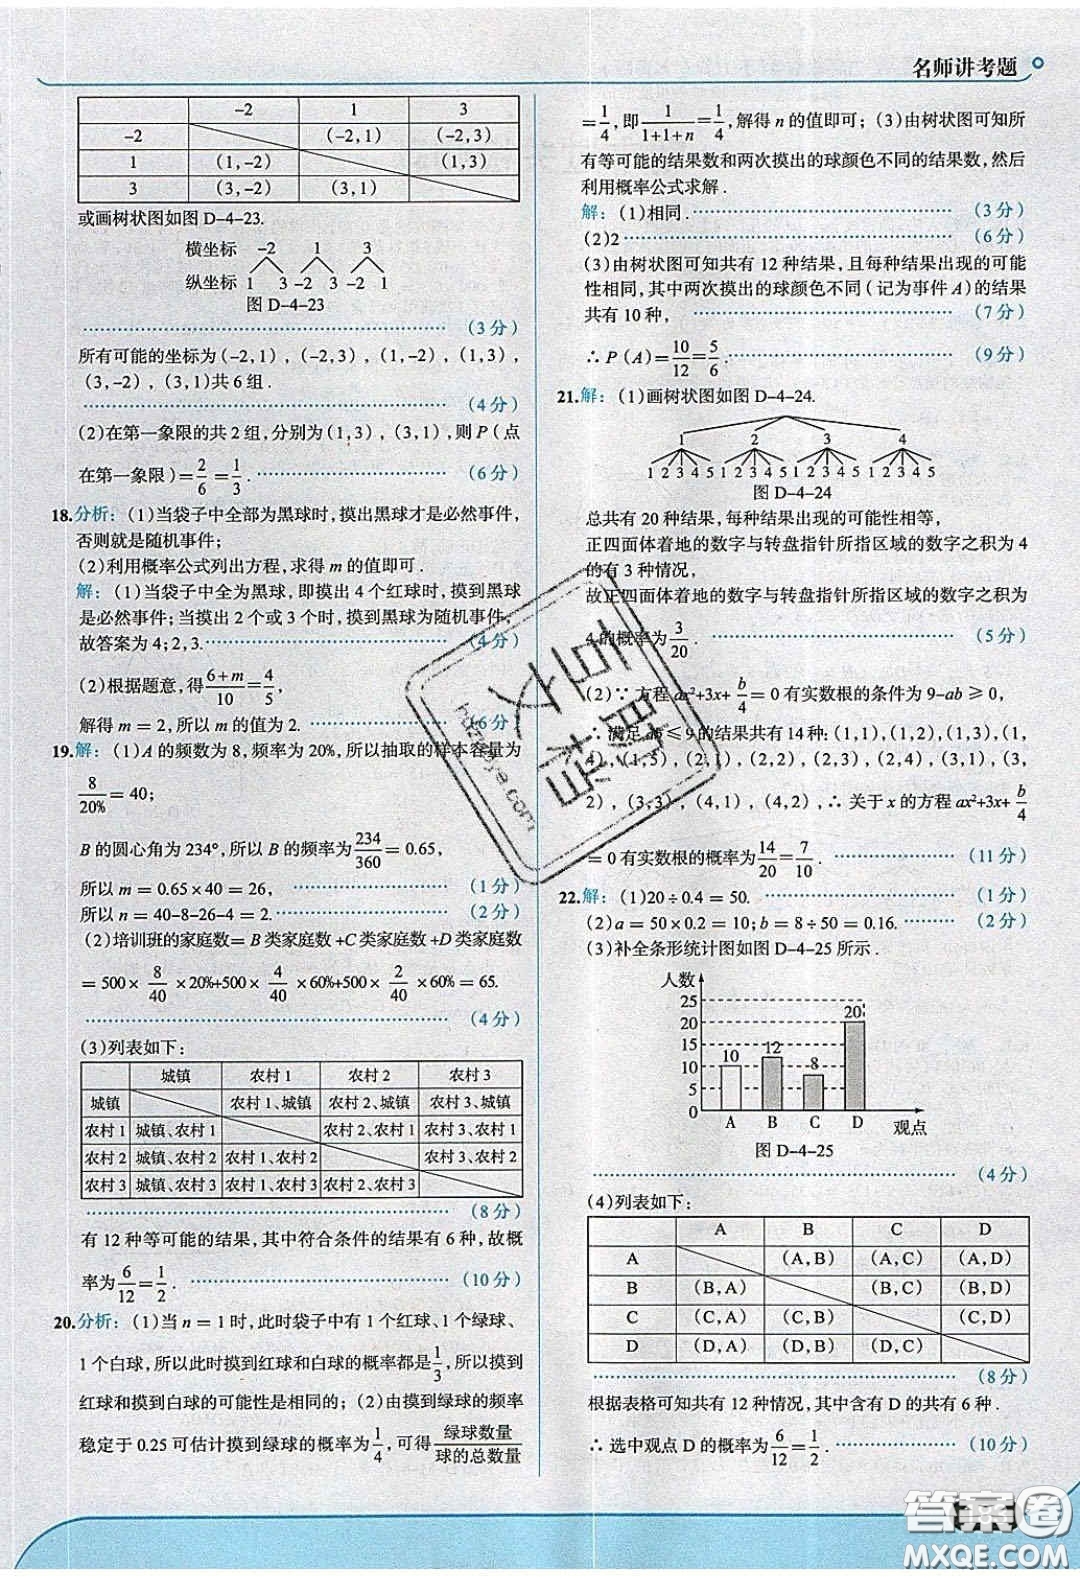 名师讲考题
-2 1 3
-2 (-2,1) (-2,3)
1 (1,-2) (1,3)
3 (3,-2) (3,1)
或画树状图如图 D-4-23.
横坐标 -2 1 3
纵坐标 1 3 -2 3 -2 1
图 D-4-23
(3 分)
所有可能的坐标为 (-2,1), (-2,3), (1,-2), (1,3),
(3,-2), (3,1)共 6 组.
(4 分)
(2)在第一象限的共 2 组,分别为(1,3), (3,1),则 P(点
在第一象限)=2/6=1/3. (6 分)
18.分析: (1)当袋子中全部为黑球时,摸出黑球才是必然事件,
否则就是随机事件;
(2)利用概率公式列出方程,求得 m 的值即可.
解: (1)当袋子中全为黑球,即摸出 4 个红球时,摸到黑球
是必然事件;当摸出 2 个或 3 个时,摸到黑球为随机事件,
故答案为 4;2,3. (4 分)
(2)根据题意,得 (6+m)/10=4/5,
解得 m = 2,所以 m 的值为 2. (6 分)
19.解: (1)A 的频数为 8,频率为 20%,所以抽取的样本容量为
8/20% = 40;
B 的圆心角为 234°,所以 B 的频率为 234/360 = 0.65,
所以 m = 0.65×40 = 26, (1 分)
所以 n = 40-8-26-4 = 2. (2 分)
(2)培训班的家庭数= B 类家庭数+C 类家庭数+D 类家庭数
= 500× 8/40 ×20%+500× 4/40 ×60%+500× 2/40 ×60% = 65.
(4 分)
(3)列表如下:
城镇 农村 1 农村 2 农村 3
城镇 农村 1、城镇 农村 2、城镇 农村 3、城镇
农村 1 城镇、农村 1 农村 2、农村 1 农村 3、农村 1
农村 2 城镇、农村 2 农村 1、农村 2 农村 3、农村 2
农村 3 城镇、农村 3 农村 1、农村 3 农村 2、农村 3
(8 分)
有 12 种等可能的结果,其中符合条件的结果有 6 种,故概
率为 6/12=1/2. (10 分)
20.分析: (1)当 n = 1 时,此时袋子中有 1 个红球、1 个绿球、
1 个白球,所以此时摸到红球和白球的概率都是1/3,所以摸到
红球和摸到白球的可能性是相同的; (2)由摸到绿球的频率
稳定于 0.25 可估计摸到绿球的概率为1/4,可得 绿球数量/球的总数量
=1/4,即 1/(1+1+n)=1/4,解得 n 的值即可; (3)由树状图可知所
有等可能的结果数和两次摸出的球颜色不同的结果数,然后
利用概率公式求解.
解: (1)相同. (3 分)
(2)2 (6 分)
(3)由树状图可知共有 12 种结果,且每种结果出现的可能
性相同,其中两次摸出的球颜色不同(记为事件 A)的结果
共有 10 种, (7 分)
∴ P (A)=10/12=5/6. (9 分)
21.解: (1)画树状图如图 D-4-24.
1 2 3 4
1 2 3 4 5 1 2 3 4 5 1 2 3 4 5 1 2 3 4 5
图 D-4-24
总共有 20 种结果,每种结果出现的可能性相等,
正四面体着地的数字与转盘指针所指区域的数字之积为 4
的有 3 种情况,
故正四面体着地的数字与转盘指针所指区域的数字之积为
4 的概率为 3/20. (5 分)
(2)∵ 方程 ax²+3x+ b/4 = 0 有实数根的条件为 9-ab ≥ 0,
∴ 满足 ab ≤ 9 的结果共有 14 种: (1,1), (1,2), (1,3), (1,
4), (1,5), (2,1), (2,2), (2,3), (2,4), (3,1), (3,
2), (3,3), (4,1), (4,2),∴ 关于 x 的方程 ax²+3x+ b/4
= 0 有实数根的概率为 14/20=7/10. (11 分)
22.解: (1)20÷0.4 = 50. (1 分)
(2)a = 50×0.2 = 10; b = 8÷50 = 0.16. (2 分)
(3)补全条形统计图如图 D-4-25 所示.
人数
25
20
15
10
5
0
10 12 8 20
A B C D 观点
图 D-4-25
(4 分)
(4)列表如下:
A B C D
A (A,B) (A,C) (A,D)
B (B,A) (B,C) (B,D)
C (C,A) (C,B) (C,D)
D (D,A) (D,B) (D,C)
(8 分)
根据表格可知共有 12 种情况,其中含有 D 的共有 6 种.
∴ 选中观点 D 的概率为 6/12=1/2. (10 分)
答案卷
MXQE.COM